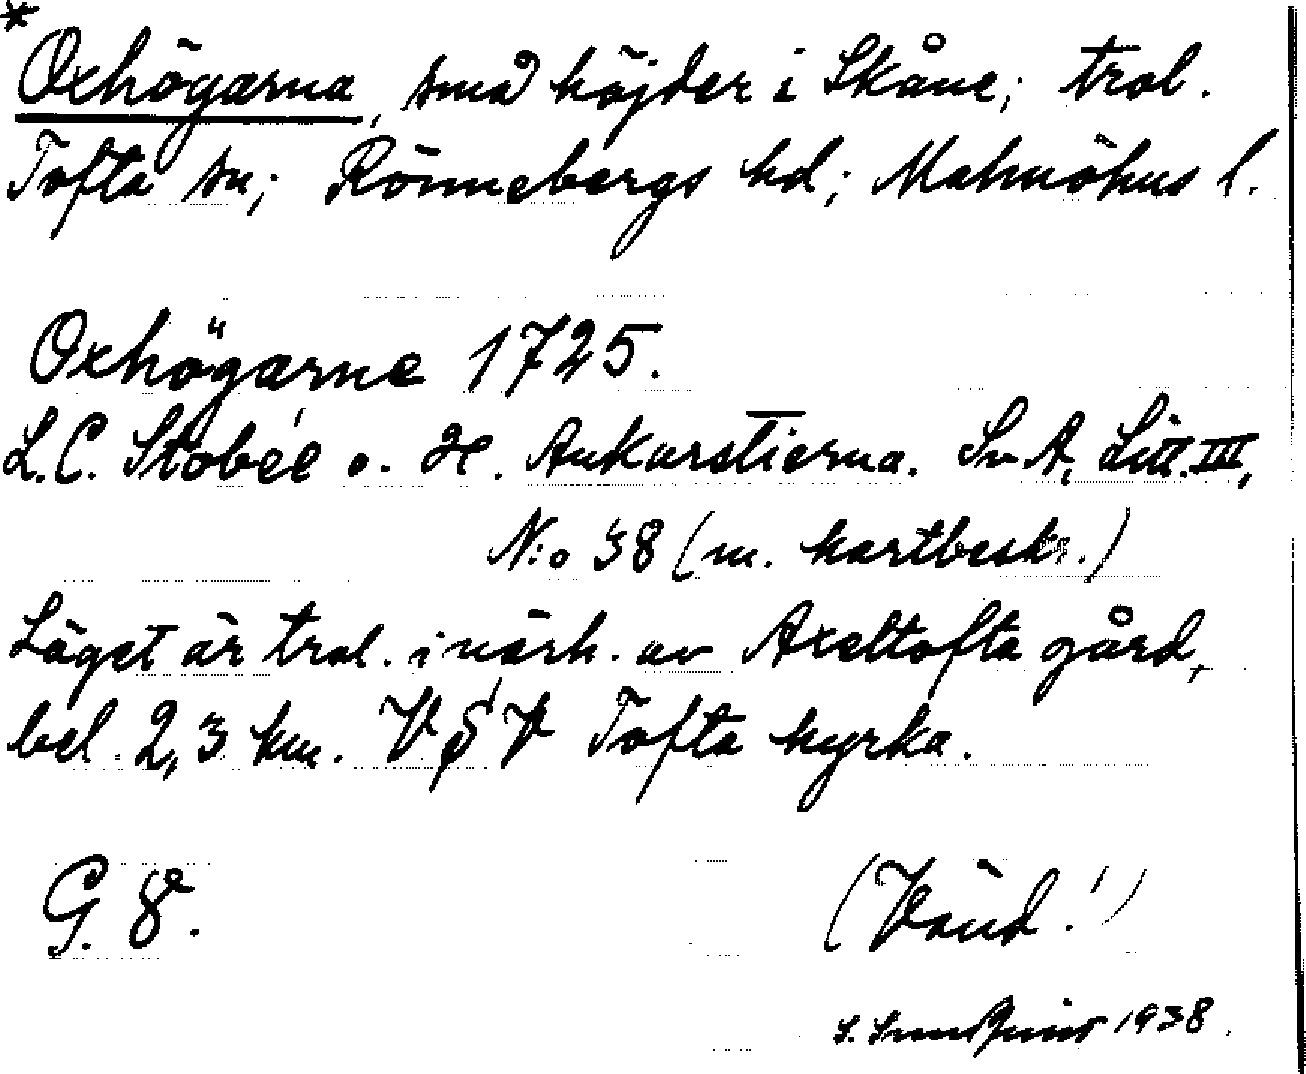 *
Oxhögarna, små höjder i Skåne; trol.
Tofta sn; Rönnebergs hd; Malmöhus l.
Oxhögarne 1725.
L.C. Stobée o. H. Ankarstierna. Sv A, Litt. III,
N:o 38 (m. kartbeskr.)
Läget är trol. i närh. av Axeltofta gård,
bel. 2,3 km. V S V Tofta kyrka.
G. 8.
(Vänd!)
S. Sundquist 1938.